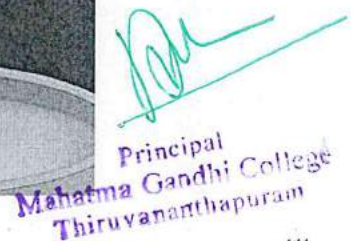 Principal
Mahatma Gandhi College
Thiruvananthapuram